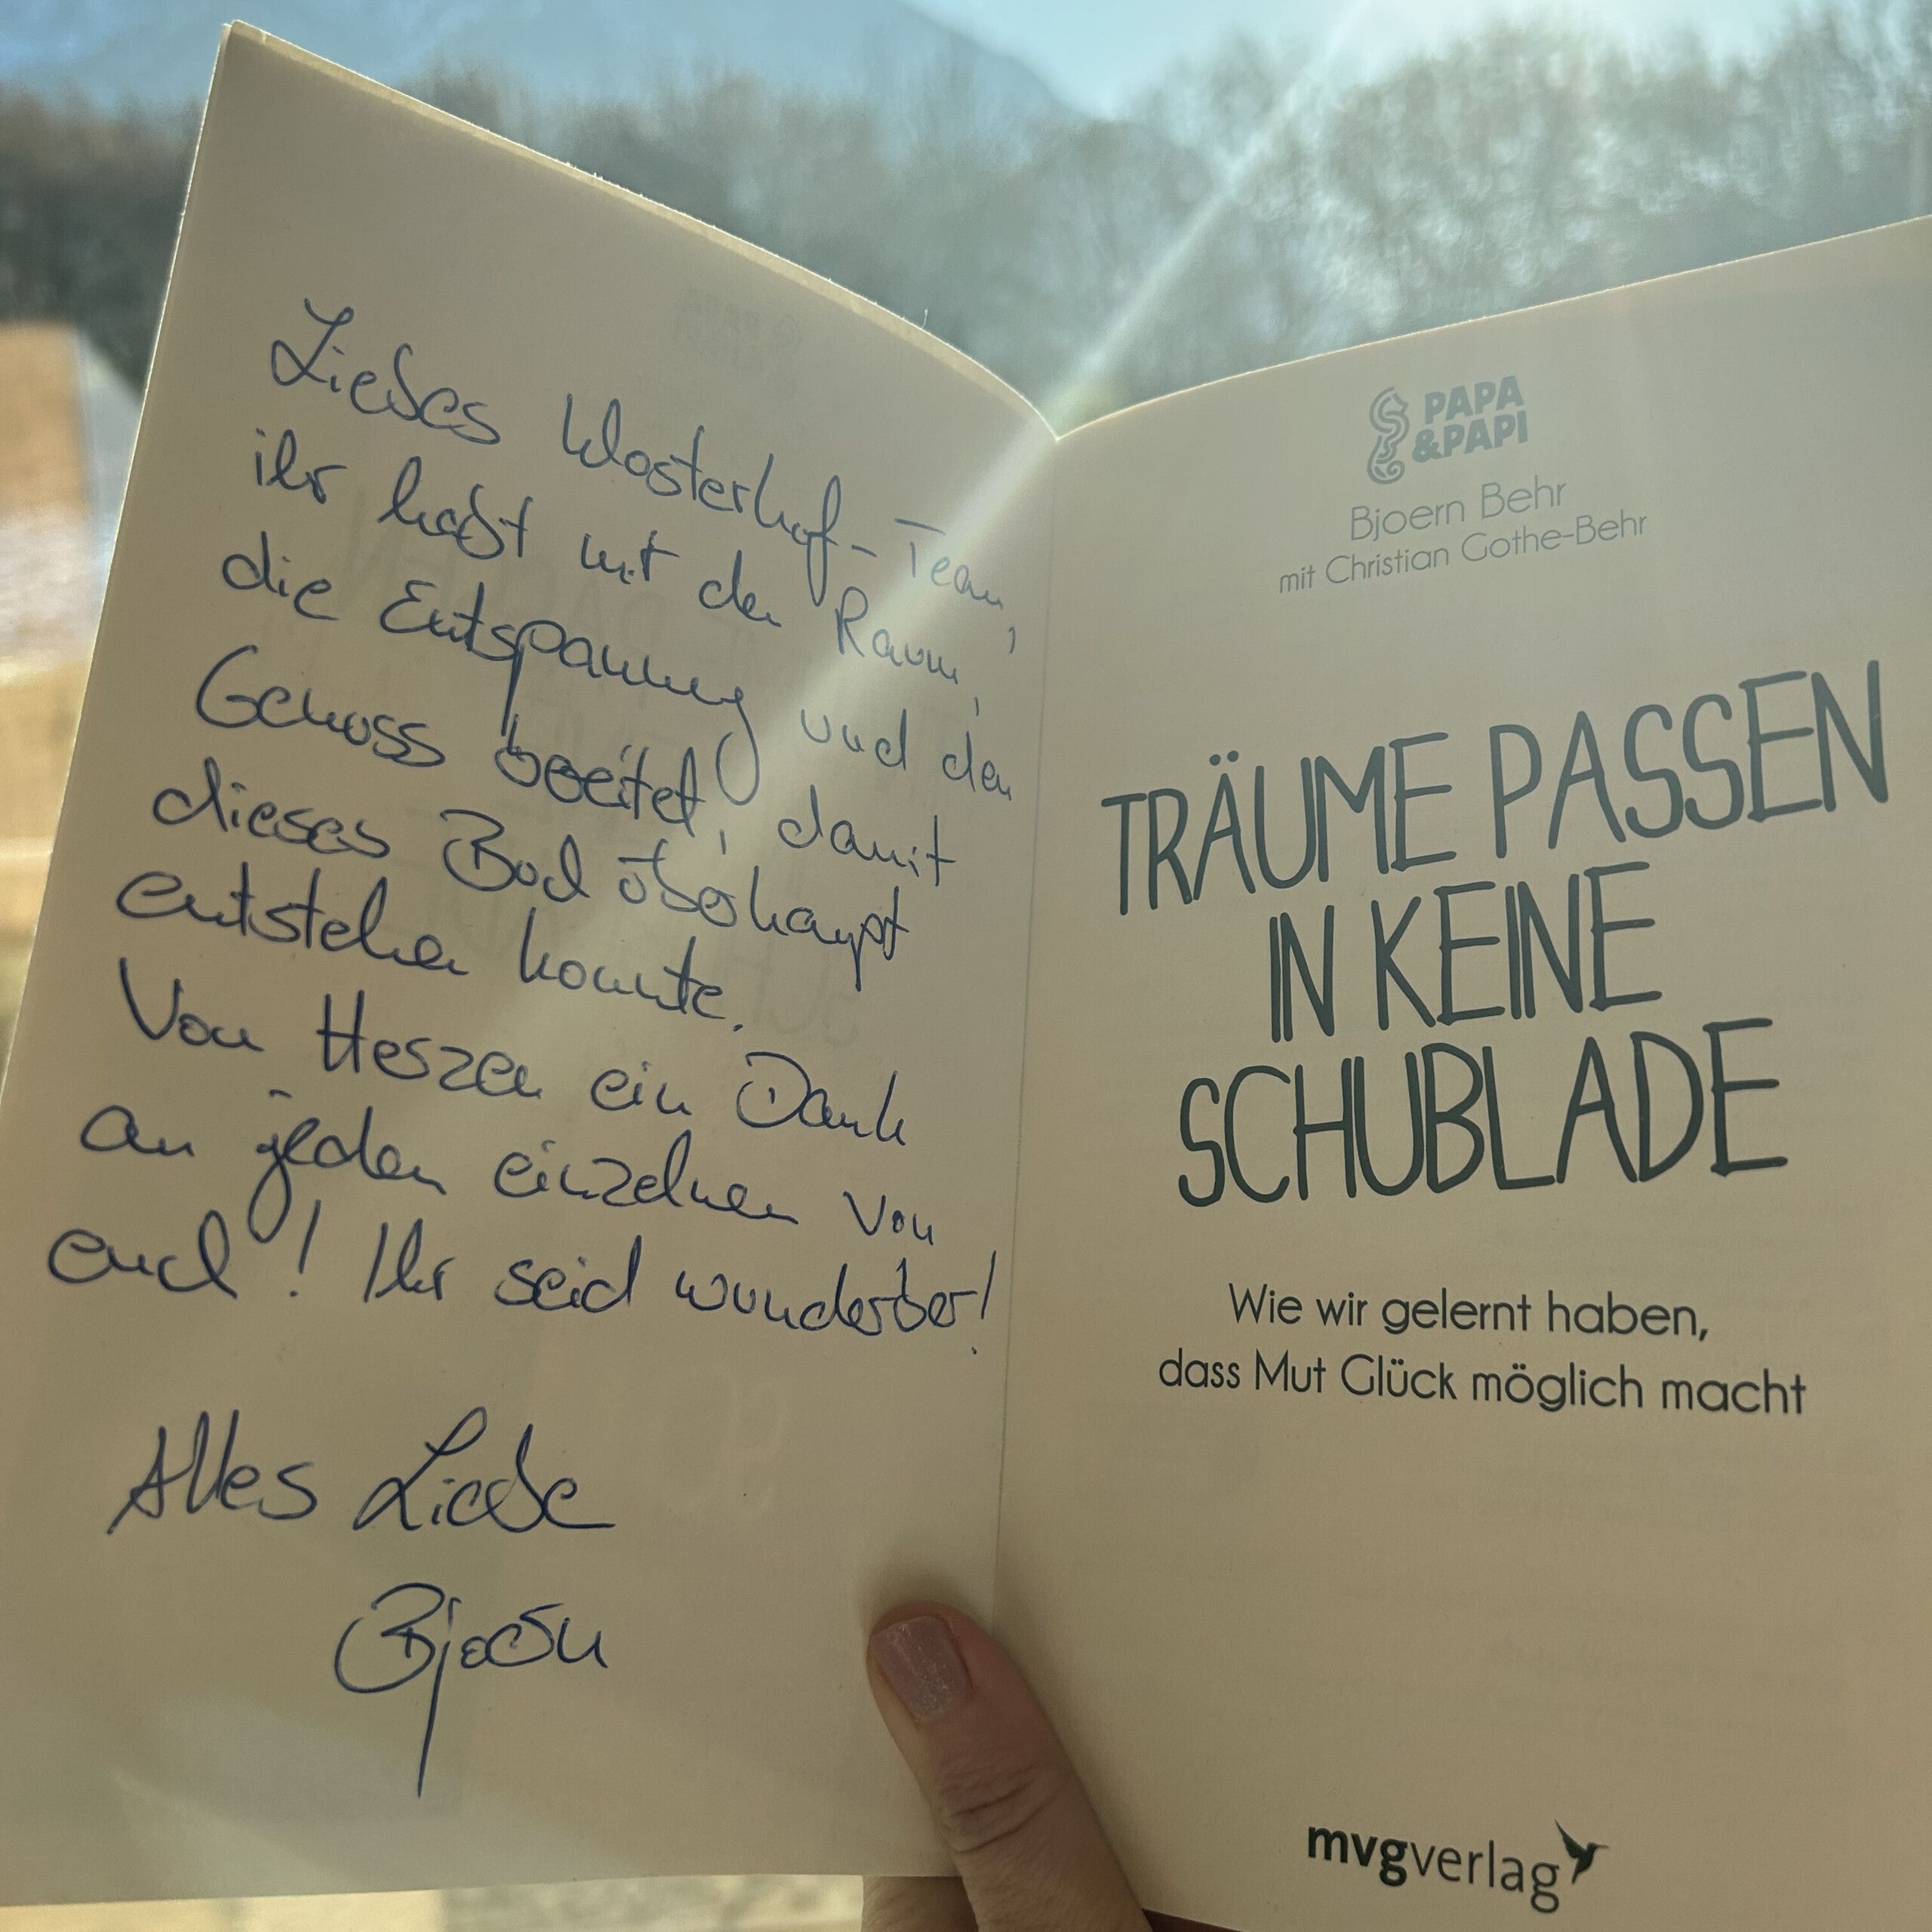 Liebes Klosterhof-Team,
ihr habt mir den Raum,
die Entspannung und den
Genuss bereitet, damit
dieses Buch überhaupt
entstehen konnte.
Von Herzen ein Dank
an jeden einzelnen von
euch! Ihr seid wunderbar!
Alles Liebe
Bjoern
PAPA
&PAPI
Bjoern Behr
mit Christian Gothe-Behr
TRÄUME PASSEN
IN KEINE
SCHUBLADE
Wie wir gelernt haben,
dass Mut Glück möglich macht
mvgverlag